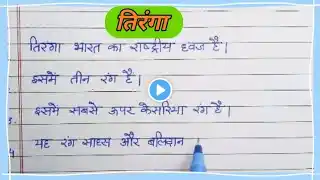 तिरंगा
तिरंगा भारत का राष्ट्रीय ध्वज है।
इसमें तीन रंग है।
3. इसमें सबसे ऊपर केसरिया रंग है।
4. यह रंग साहस और बलिदान